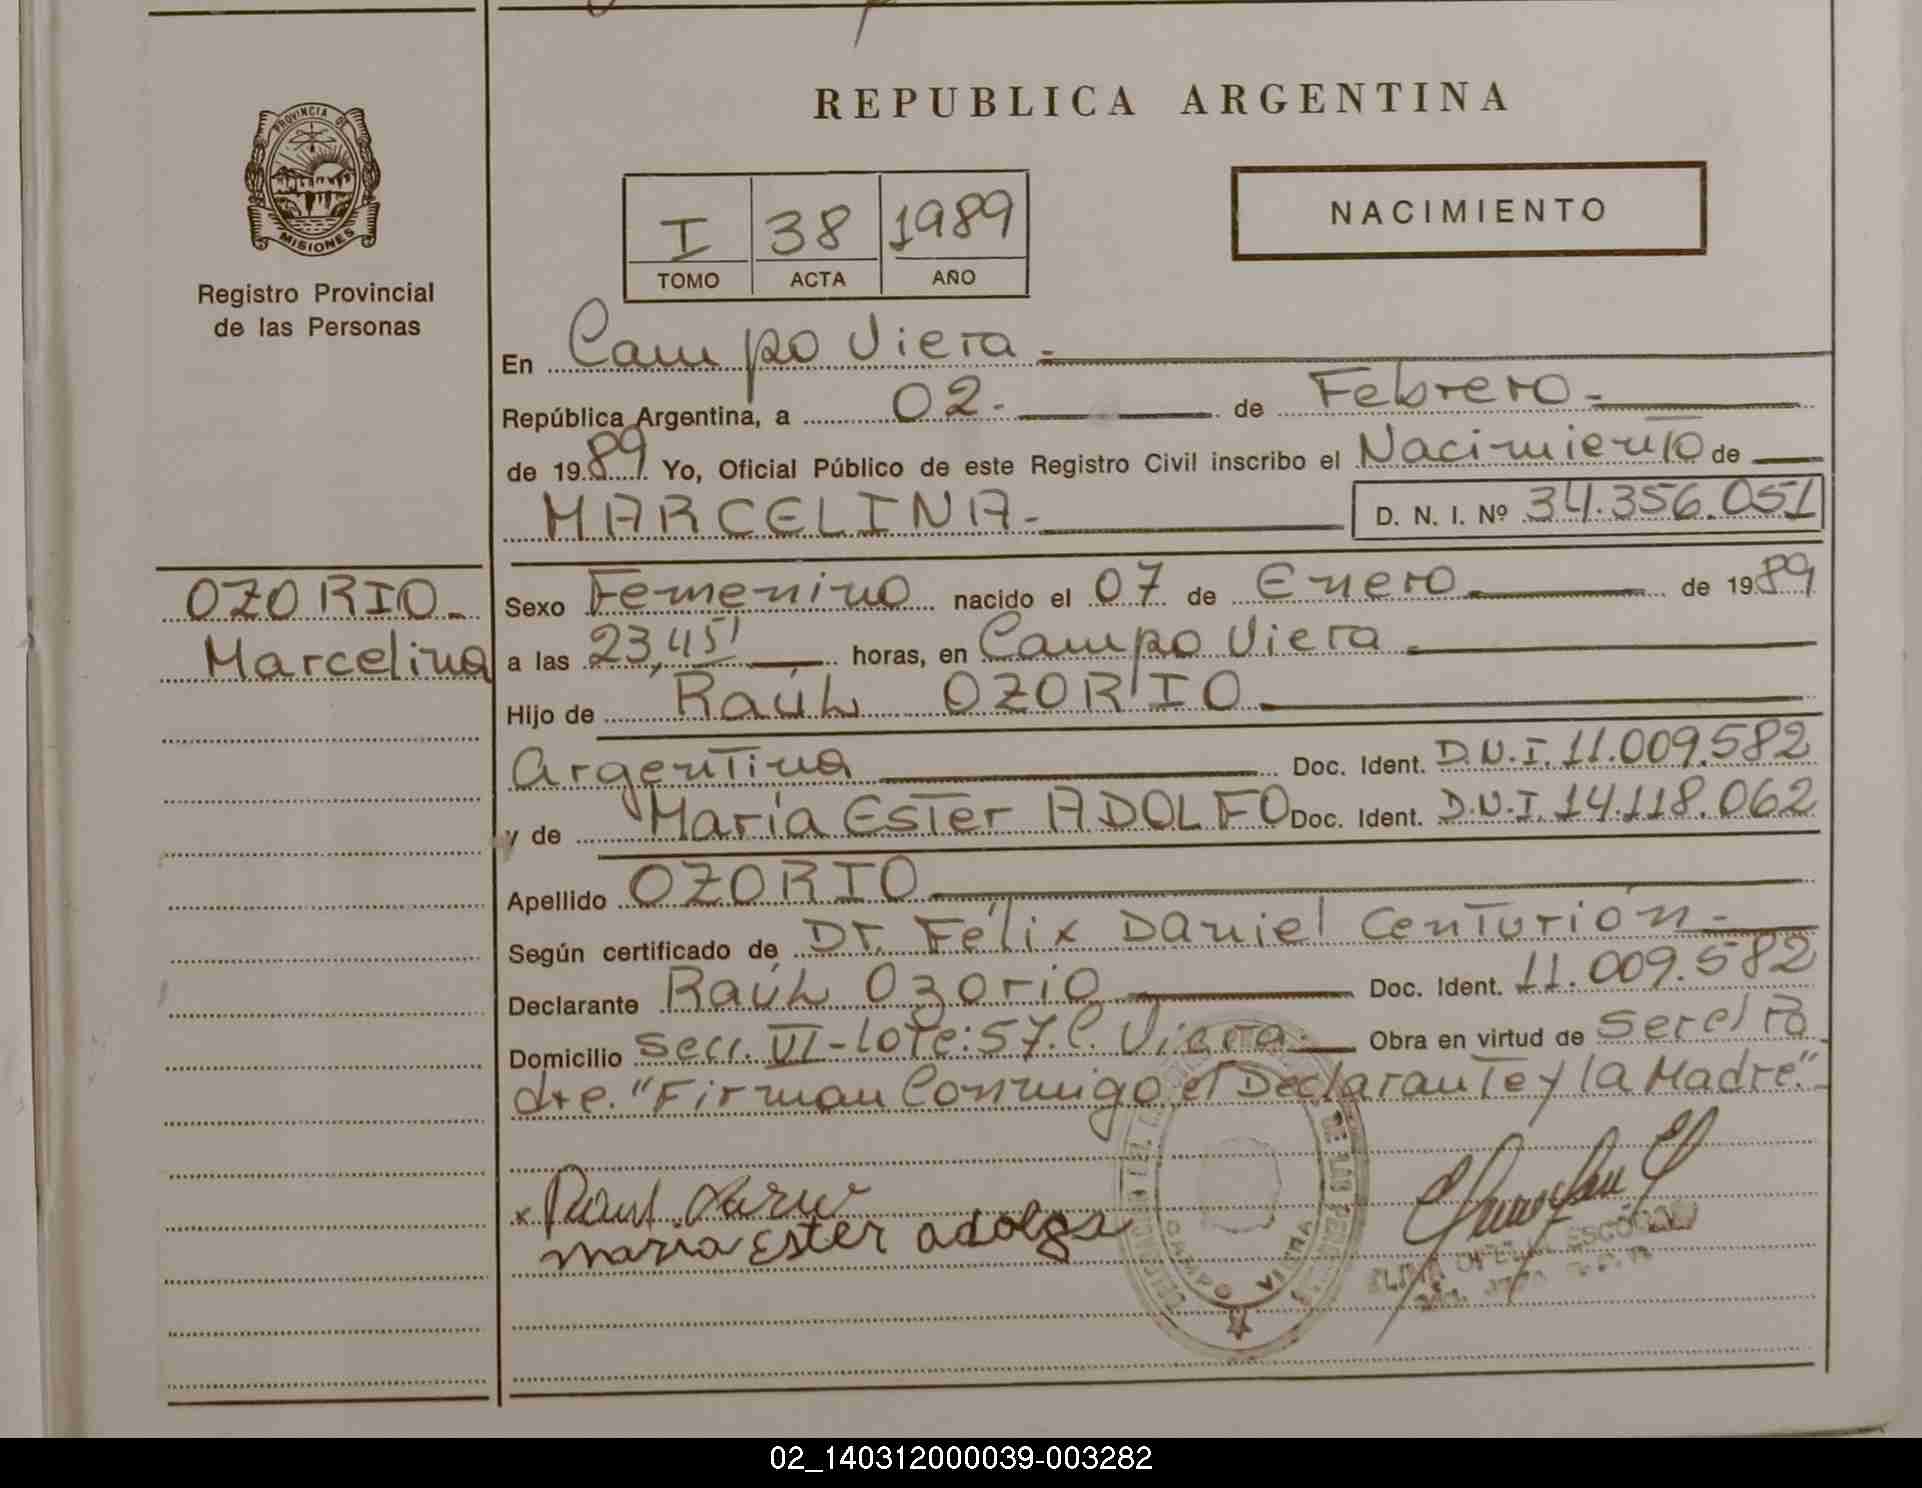 REPUBLICA ARGENTINA
PROVINCIA DE
MISIONES
Registro Provincial
de las Personas
I 38 1989
TOMO ACTA AÑO
NACIMIENTO
En Campo Viera.-
República Argentina, a 02.- de Febrero.-
de 1989 Yo, Oficial Público de este Registro Civil inscribo el Nacimiento de
MARCELINA.- D. N. I. Nº 34.356.051
OZORIO.-
Marcelina
Sexo Femenino nacido el 07 de Enero de 1989
a las 23,45' horas, en Campo Viera
Hijo de Raúl OZORIO
Argentina Doc. Ident. D.N.I. 11.009.582
y de María Ester ADOLFO Doc. Ident. D.N.I. 14.118.062
Apellido OZORIO
Según certificado de Dr. Félix Daniel Centurión.-
Declarante Raúl Ozorio Doc. Ident. 11.009.582
Domicilio Secc. VI-lote:57.C. Viera.- Obra en virtud de ser el Pa
dre. "Firman Conmigo el Declarante y la Madre".-
x Raul
maria Ester adolfo
CAMPO VIERA
02_140312000039-003282